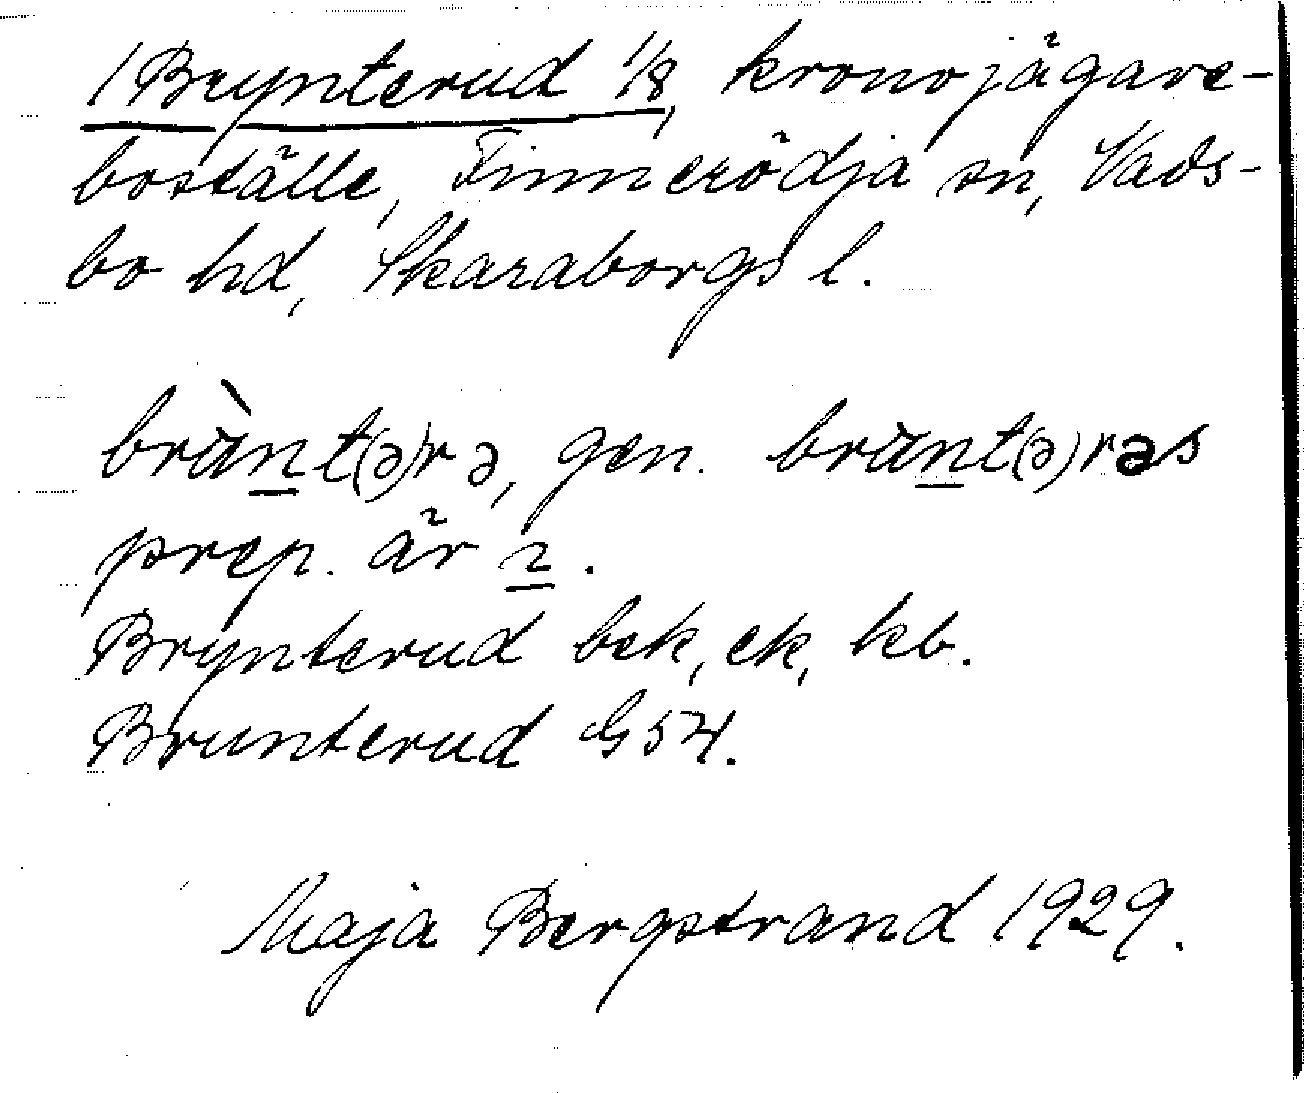 1 Brynterud 1/8, kronojägare-
boställe, Finnerödja sn, Vads-
bo hd, Skaraborgs l.
brànt(ə)rə, gen. brànt(ə)rəs
prep. är ı.
Brynterud bek, ek, kb.
Brunterud G54.
Maja Bergstrand 1929.